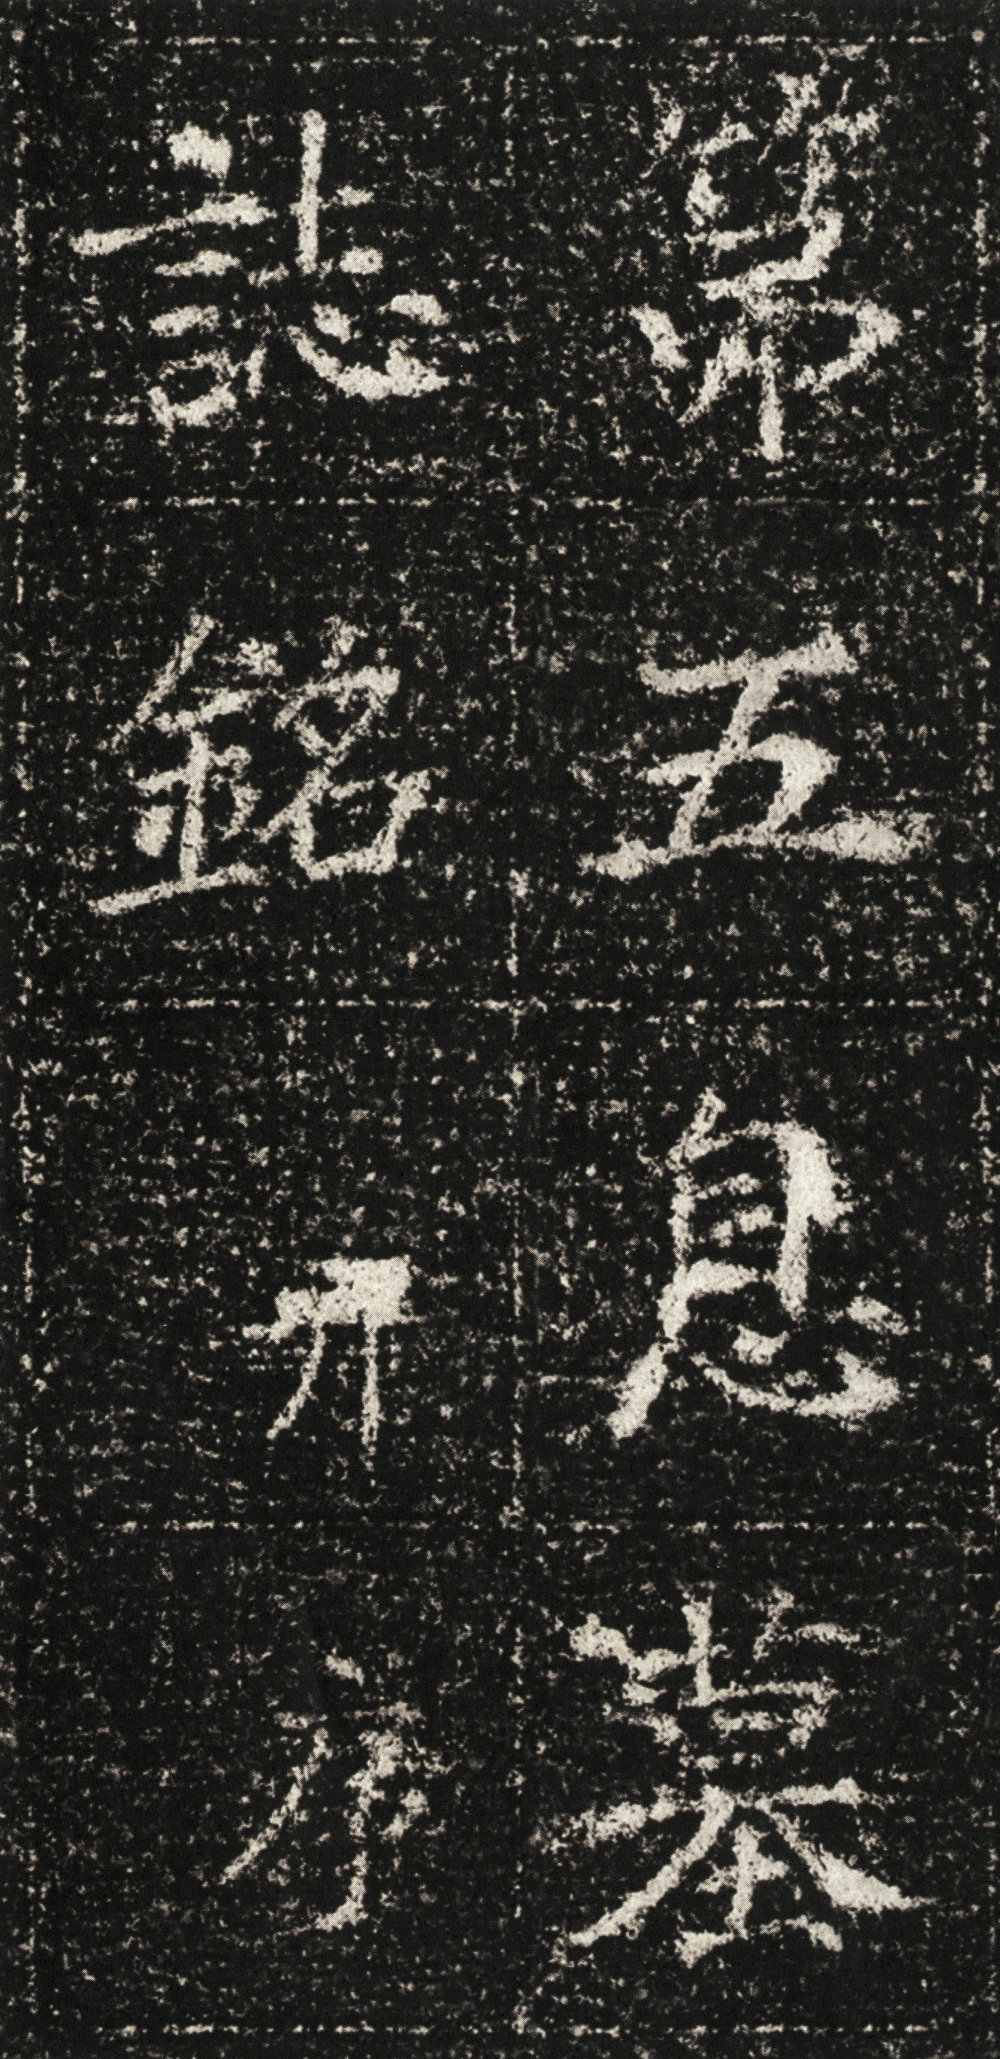 第五息墓
誌銘并序